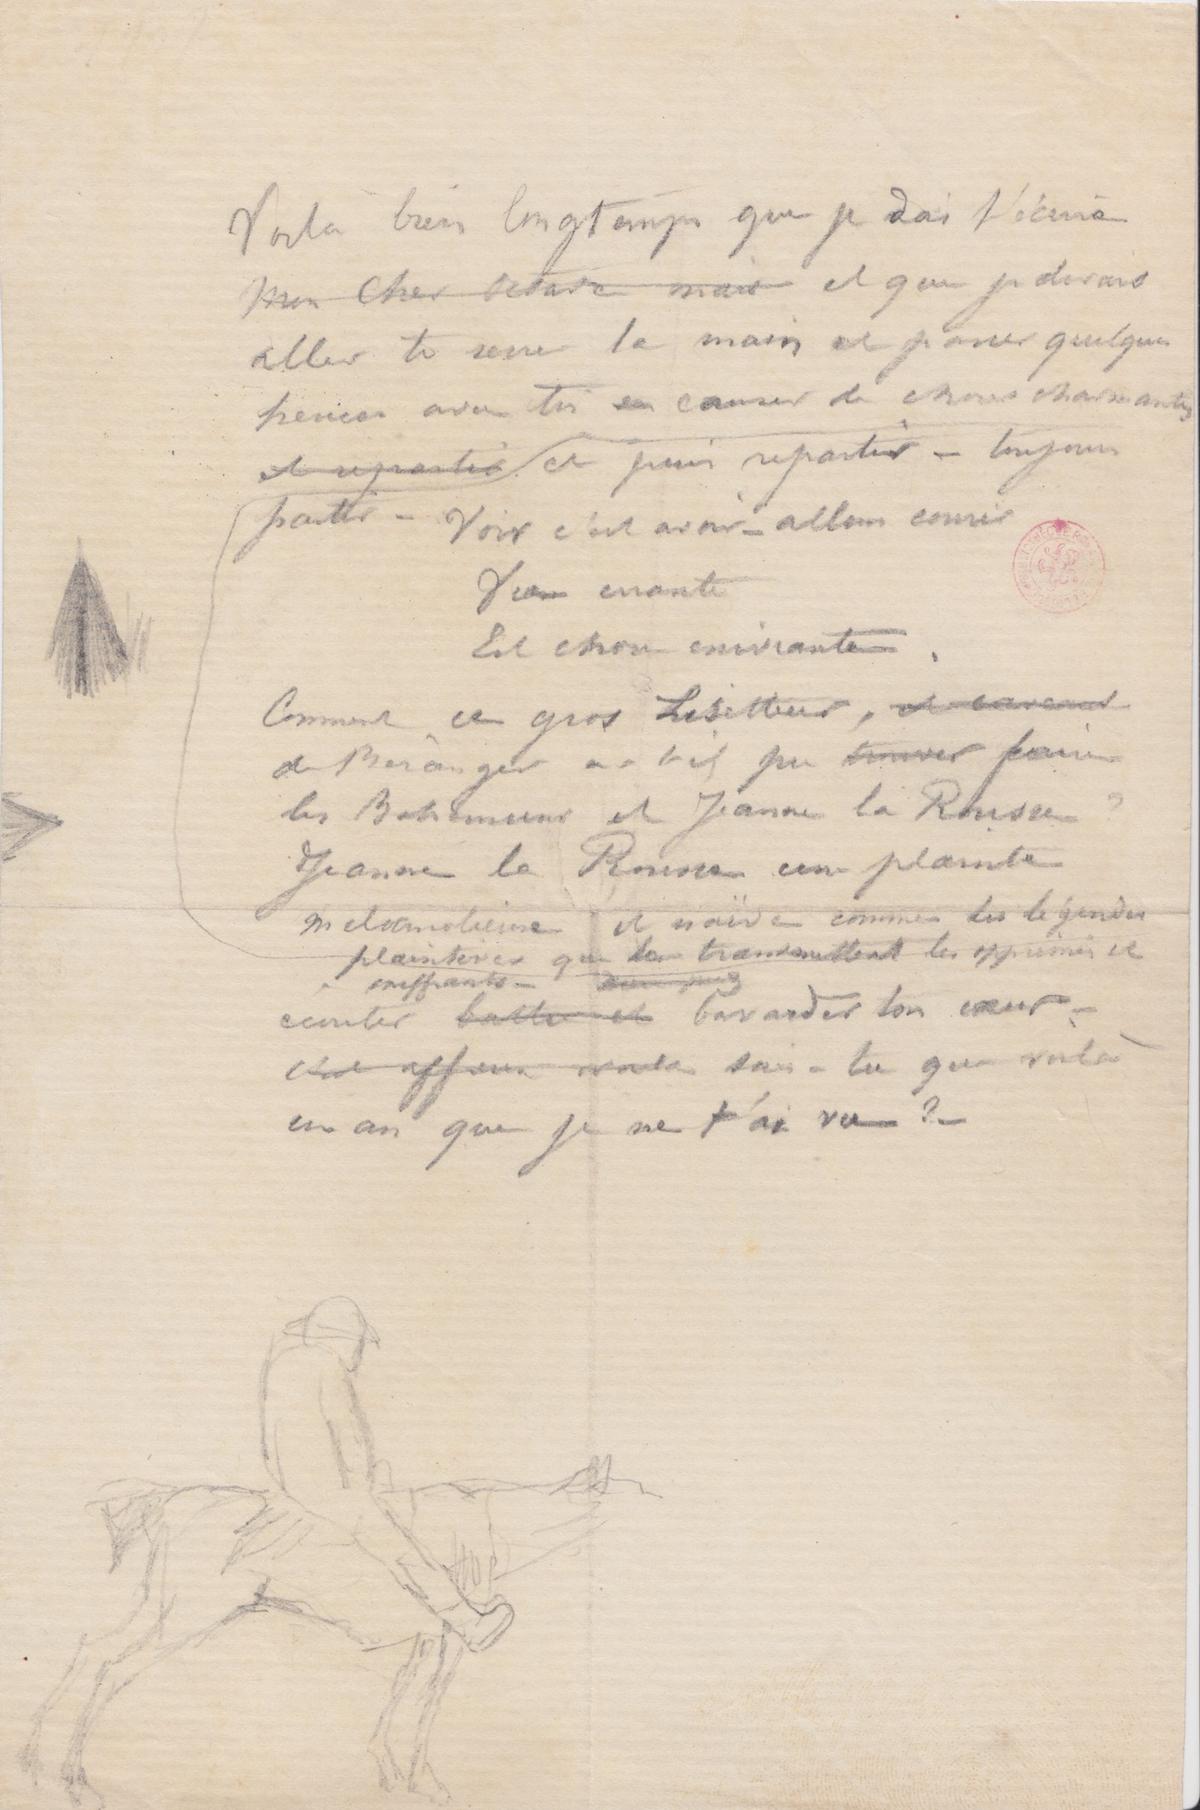 Voilà bien longtemps que je dois t'écrire
mon cher mais et que je devrais
aller te serrer la main et passer quelques
heures avec toi en causer de choses charmantes
et repartir et puis repartir – toujours
partir – Voir c'est avoir – allons courir
Vie errante
Est chose enivrante.
Comment ce gros Lisetteur, et caveaut
de Béranger a-t-il pu trouver faire
les Bohémiens et Jeanne la Rousse ?
Jeanne la Rousse une plainte
mélancolieuse et naïve comme les légendes
plaintives que transmettent les opprimés et
souffrants –
écouter battre et bavarder ton cœur –
c'est affreux sais-tu que voilà
un an que je ne t'ai vu ? –